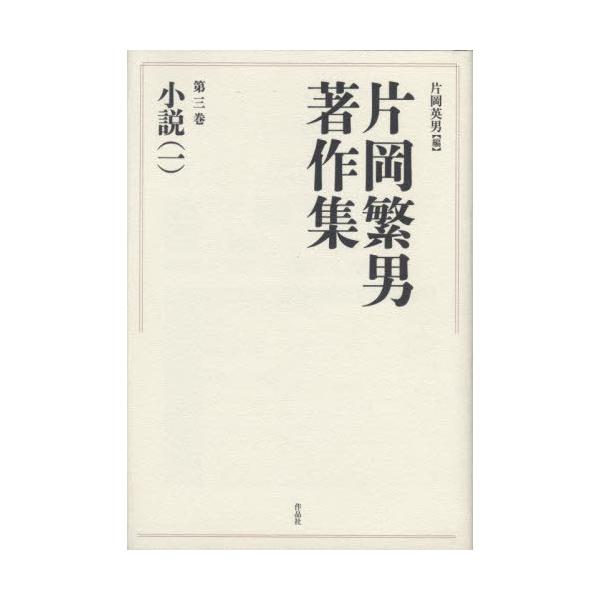 片岡英男【編】
片岡繁男
著作集
第三巻
小説（一）
作品社